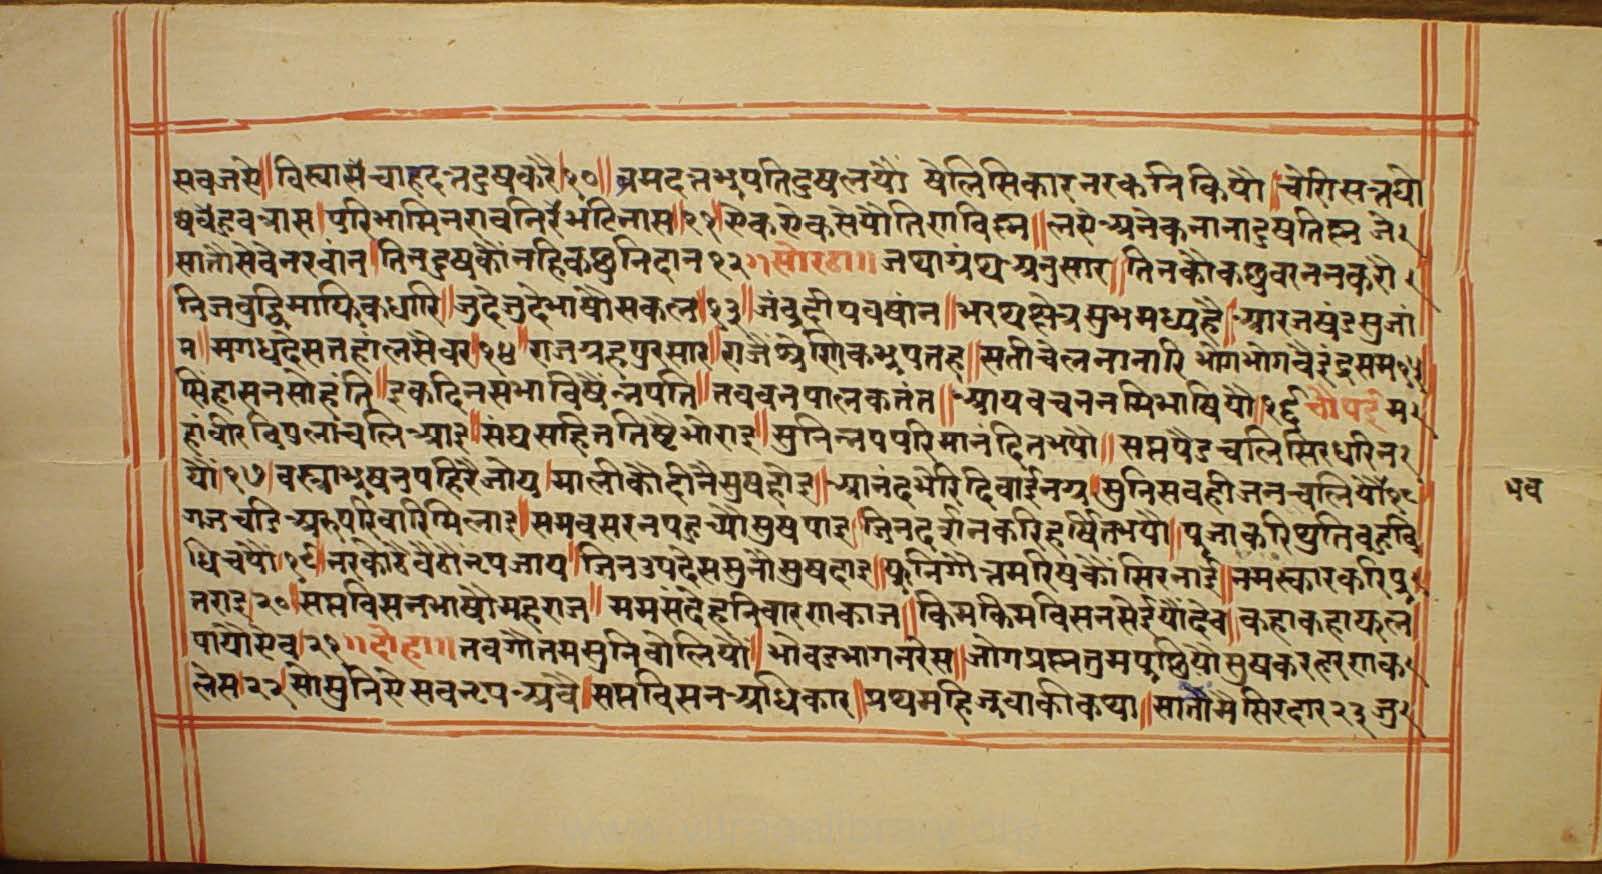 सवजसे॥ विस्यासै चारुदन्तदुषकरै।१०॥ व्रमदत्तभुपतिदुषलयौ षेलिसिकारनरकनिकियौ॥ चोरीसन्तयौ
षषैहवत्रास। परिभामिनरावनतिरैभटिनास॥११॥ सेकयेकसेयौतिगाविस्न॥ लसेअनेकनानादुषतिस्न जे१
सातौसेवैनरवांन॥ तिनदुषकौनहिकछुनिदान१२॥ सोरठा॥ जथाग्रंथअनुसार॥ तिनकौकछुवरननकरौ१
निजबुद्धिमाफिकधारि॥ जुदेजुदेभाषौसकल॥१३॥ जंबुदीपवषांन॥ भरथषेत्रसुभमध्यहै॥ आरजषंडसुजां
न॥ मगधदेसतहांलसैवर॥१४॥ राजग्रहपुरसार॥ राजैश्रेणिकभुपतह॥ सतीचेलनानारि भोगभोगवैइंद्रसम१५
सिंहासनसोहंति॥ इकदिनसभाविषैनृपति॥ तववनपालकतंत॥ आयवचननमिभाषियौ॥१६ चौपई म१
हांवीरविपुलाचलिआइ॥ संघसहिततिष्ठेभोराइ॥ सुनिनृपपरिमानंदितभयौ॥ सप्तपैडचलिसिरधरिन१
यौ॥१७॥ वस्त्राभुषनपहिरैजोय मालीकौदीनैसुषहोइ॥ आनंदभेरिदिवाईनग्र॥ सुनिसवहीजनचलियौ१८
गजचढिअरुपरिवारिमिलाइ॥ समवसरनपहुच्यौसुषपाइ॥ जिनदर्शनकरिहर्षितभयौ॥ पूजाकरिथुतिवहुवि
धिचयौ॥१९॥ नरकोठैवैठौनृपजाय॥ जिनउपदेससुनौसुषदाइ॥ फुनिगौतमरिषकौसिरनाई॥ नमस्कारकरिपु१
तराइ२०॥ सप्तविसनभाषौमहराज॥ ममसंदेहनिवारणकाज॥ किमकिमविसनसेईयौदेव॥ कहाकहाफल
पायौसेव॥२१॥ दोहा॥ तवगौतममुनिवोलियौ॥ भोवडभागनरेस॥ जोगप्रस्नतुमपुछियौ सुषकरहरणक१
लेस॥२२॥ सोसुनिसेसवनृपअवै॥ सप्तविसनअधिकार॥ प्रथमहिजुवाकीकथा॥ सातौमैसिरदार२३ जु१